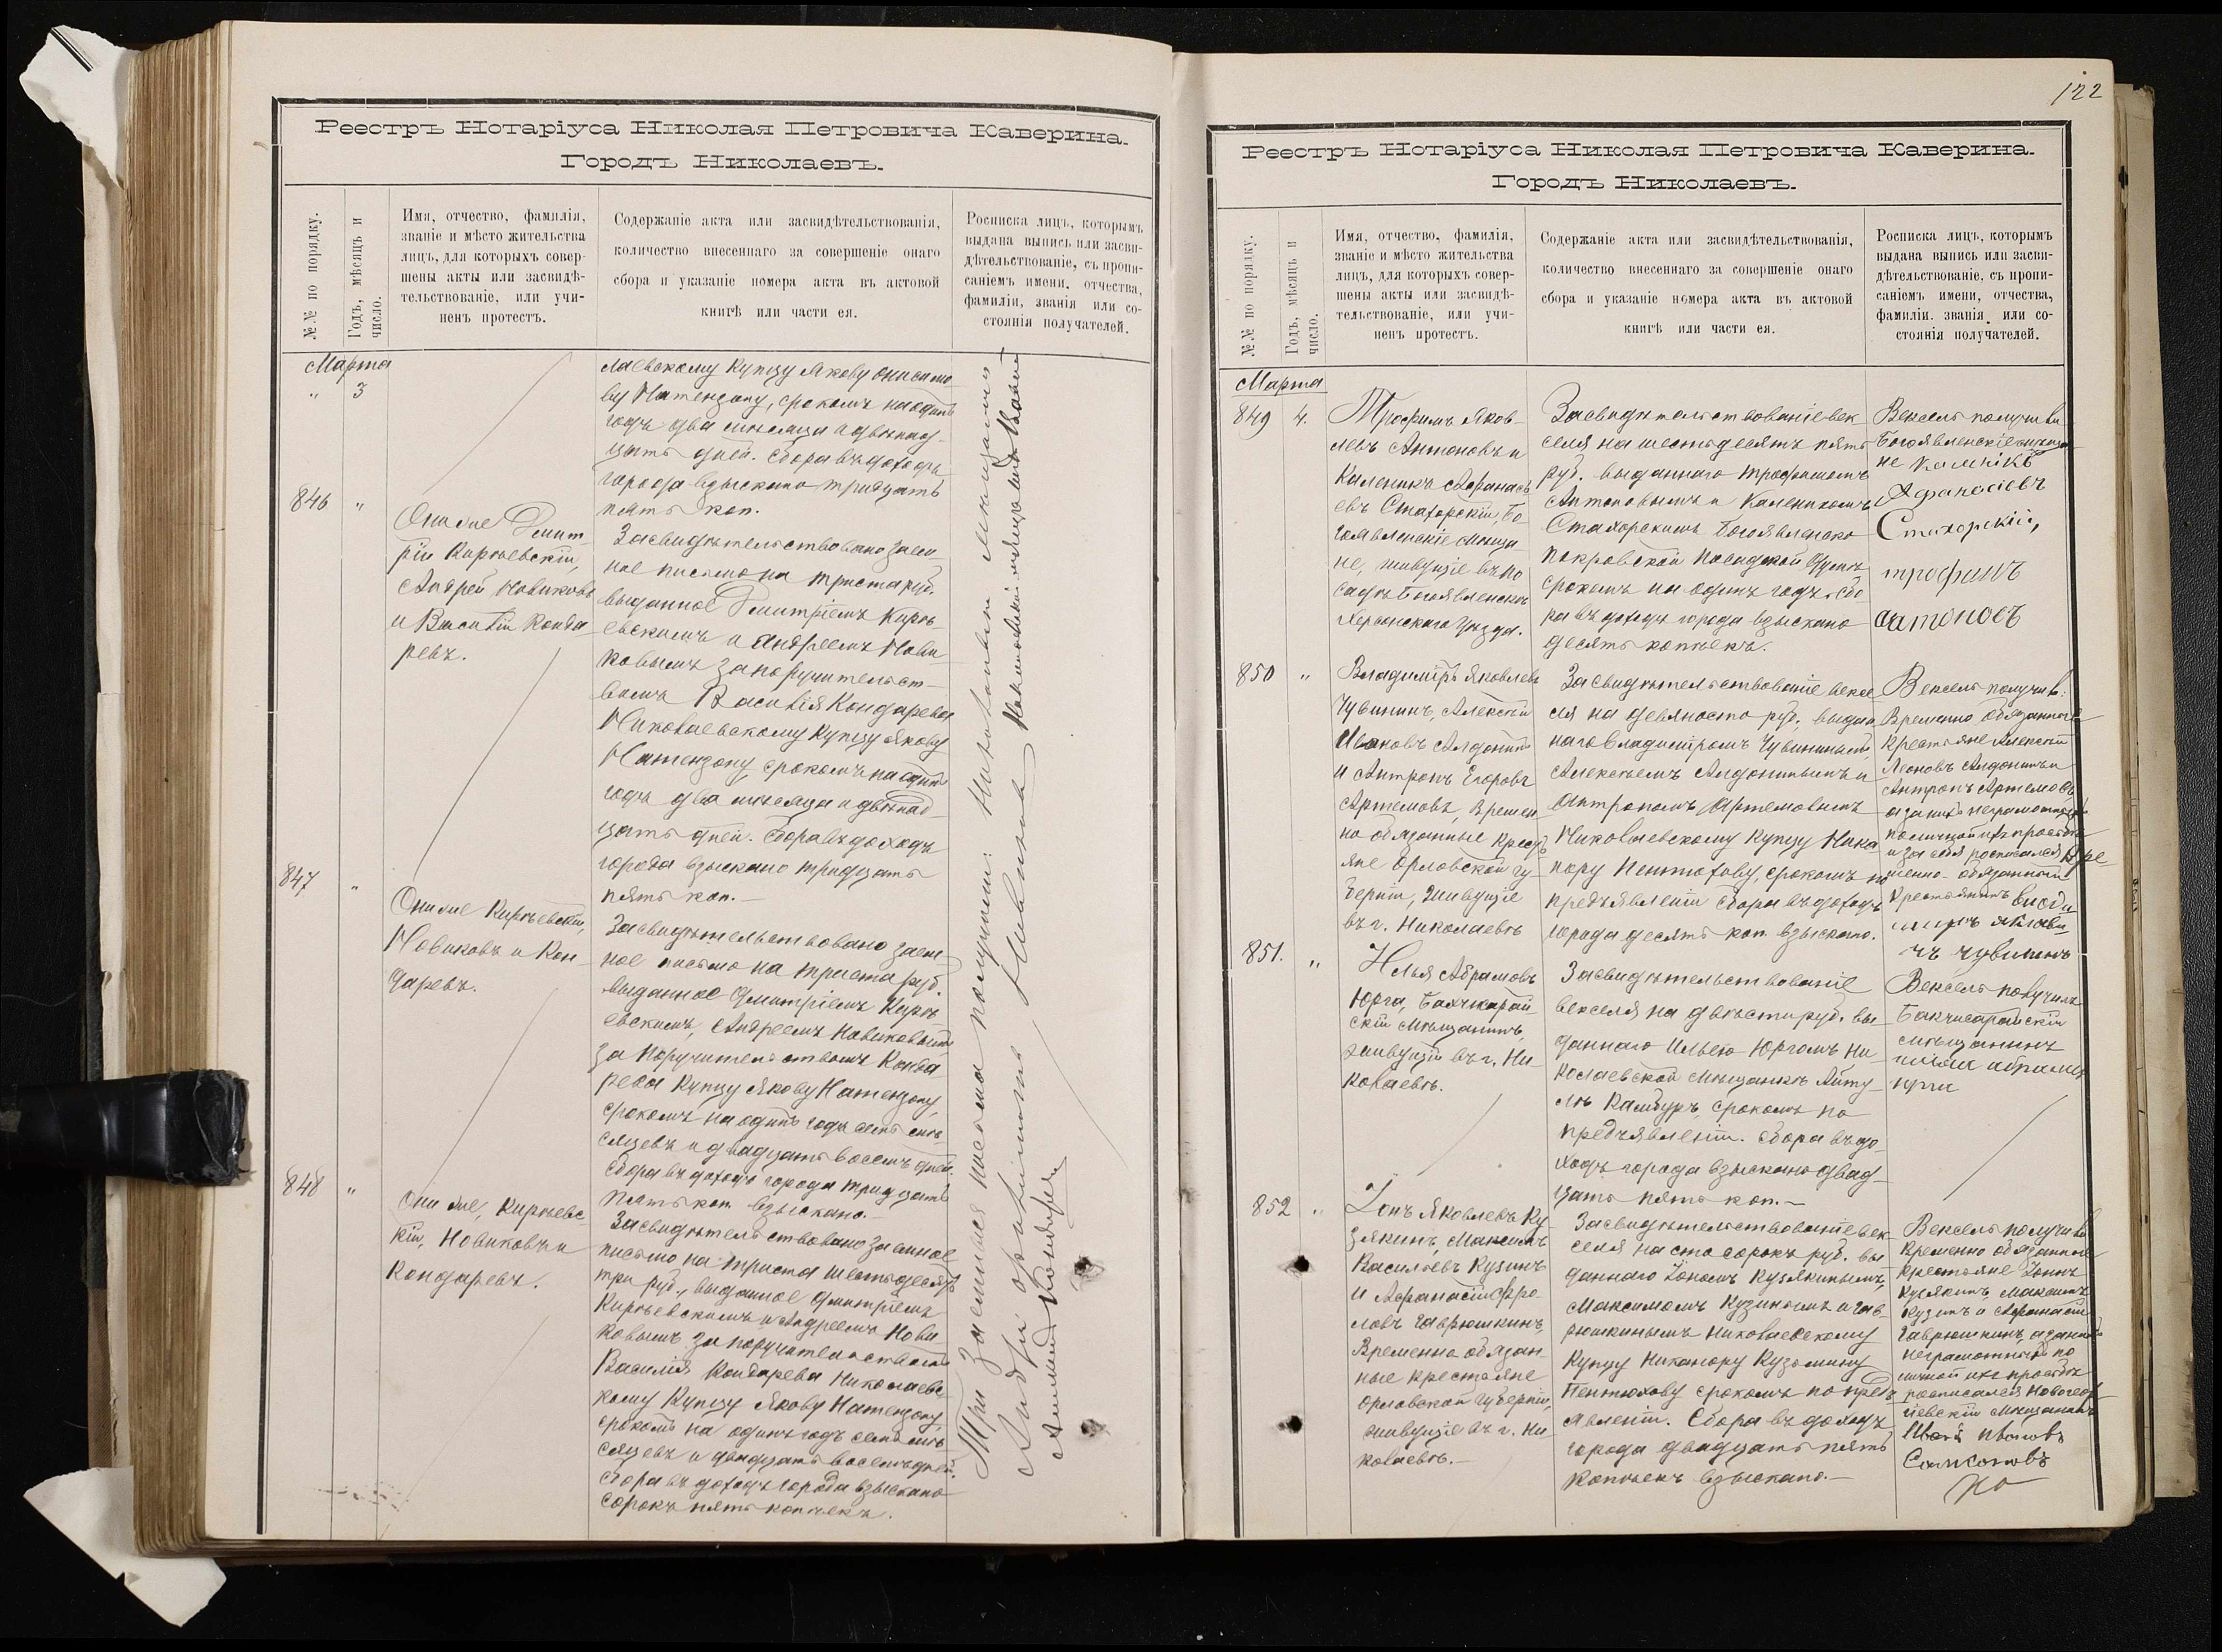 122
Реестръ Нотаріуса Николая Петровича Каверина.
Городъ Николаевъ.
№.№ по порядку.
Годъ, мѣсяцъ и
число.
Имя, отчество, фамилія,
званіе и мѣсто жительства
лицъ, для которыхъ совер-
шены акты или засвидѣ-
тельствованіе, или учи-
ненъ протестъ.
Содержаніе акта или засвидѣтельствованія,
количество внесеннаго за совершеніе онаго
сбора и указаніе номера акта въ актовой
книгѣ или части ея.
Росписка лицъ, которымъ
выдана выпись или засви-
дѣтельствованіе, съ пропи-
саніемъ имени, отчества,
фамиліи, званія или со-
стоянія получателей.
Марта
" 3
лаевскому купцу Якову
ву Натензону, срокомъ на одинъ
годъ два мѣсяца и двѣнад-
цать дней. Сбора въ доходъ
города взыскано тридцать
пять коп.
846 "
Они же Дмит-
рій Киреевскій,
Андрей Новиковъ
и Василій Конда-
ревъ.
Засвидѣтельствовано заем
ное письмо на триста руб.
выданное Дмитріемъ Кирѣ-
евскимъ и Андреемъ Нови
ковымъ за поручительст-
вомъ Василія Кондарева
Николаевскому купцу Якову
Натензону, срокомъ на одинъ
годъ два мѣсяца и двѣнад-
цать дней. Сбора въ доходъ
города взыскано тридцать
пять коп.-
847 "
Они же Кирѣевскій,
Новиковъ и Кон-
даревъ.
Засвидѣтельствовано заем-
ное письмо на триста руб.
выданное Дмитріемъ Кирѣ
евскимъ, Андреемъ Новиковымъ
за поручительствомъ Конда
рева купцу Якову Натензону,
срокомъ на одинъ годъ семь мѣ-
сяцевъ и двадцать восемь дней.
Сбора въ доходъ города тридцать
пять коп. взыскано.-
848 "
Они же, Кирѣевс
кій, Новиковъ и
Кондаревъ.
Засвидѣтельствовано заемное
письмо на триста шестьдесятъ
три руб., выданное Дмитріемъ
Кирѣевскимъ и Андреемъ Нови
ковымъ за поручательствомъ
Василія Кондарева Николаевс-
кому купцу Якову Натензону,
срокомъ на одинъ годъ семь мѣ-
сяцевъ и двадцать восемь дней.
Сбора въ доходъ города взыскано
сорокъ пять копѣекъ.
Три заемныя письма получили:
Андрей
Реестръ Нотаріуса Николая Петровича Каверина.
Городъ Николаевъ.
№.№ по порядку.
Годъ, мѣсяцъ и
число.
Имя, отчество, фамилія,
званіе и мѣсто жительства
лицъ, для которыхъ совер-
шены акты или засвидѣ-
тельствованіе, или учи-
ненъ протестъ.
Содержаніе акта или засвидѣтельствованія,
количество внесеннаго за совершеніе онаго
сбора и указаніе номера акта въ актовой
книгѣ или части ея.
Росписка лицъ, которымъ
выдана выпись или засви-
дѣтельствованіе, съ пропи-
саніемъ имени, отчества,
фамиліи. званія или со-
стоянія получателей.
Марта
849 4.
Трофимъ Яков-
левъ Антоновъ и
Каленикъ Афанась
евъ Стахорскій, Бо-
гоявленскіе мѣща
не, живущіе въ по
садѣ Богоявленскѣ
Херсонскаго уѣзда.
Засвидѣтельствованіе век
селя на шестьдесятъ пять
руб. выданнаго Трофимомъ
Антоновымъ и Каленикомъ
Стахорскимъ Богоявленско
Покровской посадской
срокомъ на одинъ годъ. Сбо
ра въ доходъ города взыскано
десять копѣекъ.
Вексель получили
Богоявленскіе мѣща
не Калѣнікъ
Афанасіевъ
Стахорскій,
трофимъ
антоновъ
850 "
Владиміръ Яковлевъ
Чувининъ, Алексѣй
Ивановъ Алдонинъ
и Антропъ Егоровъ
Артемовъ, времен
но обязанные кресть
яне Орловской гу-
берніи, живущіе
въ г. Николаевѣ
Засвидѣтельствованіе вексе
ля на девяносто руб. выдан
наго Владиміромъ Чувининымъ,
Алексѣемъ Алдонинымъ и
Антропомъ Артемовымъ
Николаевскому купцу Ника
нору Пентюхову, срокомъ по
предъявленіи. Сбора въ доходъ
города десять коп. взыскано.
Вексель получили:
Временно обязанные
крестьяне Алексѣй
Алдонинъ и
Антропъ Артемовъ
а за нихъ неграмотныхъ
по личной ихъ просьбѣ
и за себя росписался вре
менно-обязанный
крестьянинъ влоди
миръ яковли
чъ чувининъ
851. "
Илья Абрамовъ
Юрга, Бахчисарай
скій мѣщанинъ,
живущій въ г. Ни-
колаевѣ.
Засвидѣтельствованіе
векселя на двѣсти руб. вы-
даннаго Ильею Юргомъ Ни-
колаевской мѣщанкѣ Айту-
лѣ Камбуръ, срокомъ по
предъявленіи. Сбора въ до-
ходъ города взыскано двад-
цать пять коп.-
Вексель получилъ
Бакчисарайскій
мѣщанинъ
852 "
Іонъ Яковлевъ Ку-
зякинъ, Максимъ
Васильевъ Кузинъ
и Афанасій Фро-
ловъ Гаврюшкинъ,
временно обязан-
ные крестьяне
Орловской губерніи,
живущіе въ г. Ни
колаевѣ.-
Засвидѣтельствованіе век
селя на сто сорокъ руб. вы-
даннаго Іономъ Кузякинымъ,
Максимомъ Кузинымъ и Гав-
рюшкинымъ Николаевскому
купцу Никанору Кузьмину
Пентюхову срокомъ по предъ
явленіи. Сбора въ доходъ
города двадцать пять
копѣекъ взыскано.-
Вексель получили
временно обязанные
крестьяне Іонъ
Кузякинъ, Максимъ
Кузинъ и Афанасій
Гаврюшкинъ, а за нихъ
неграмотныхъ по
личной ихъ просьбѣ
росписался Новогеор
гіевскій мѣщанинъ
Иванъ Ивановъ